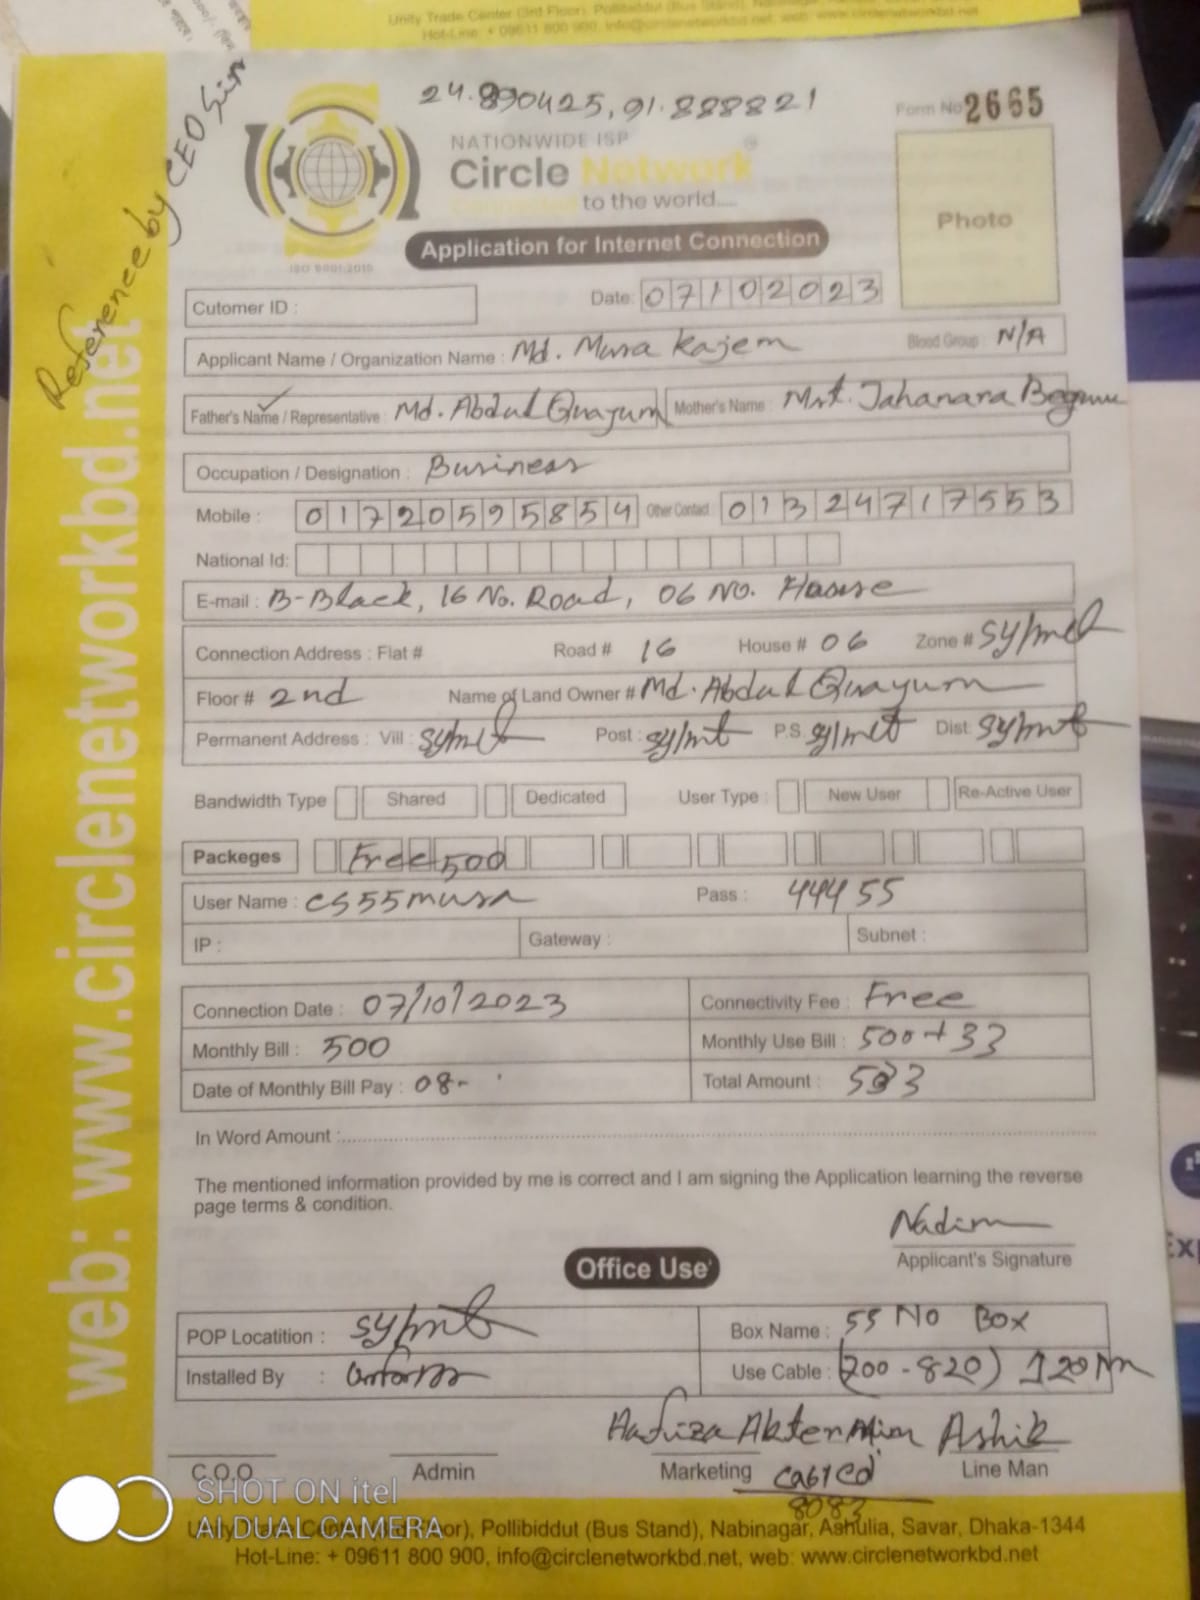 Unity Trade Center (3rd Floor), Pollibiddut (Bus Stand),
Hot-Line: + 09611 800 900, info@circlenetworkbd.net, web: www.circlenetworkbd.net
Reference by CEO Sir
24.890425, 91.888821
Form No 2665
NATIONWIDE ISP
Circle Network
to the world....
ISO 9001:2015
Photo
Application for Internet Connection
Cutomer ID :
Date: 07102023
Applicant Name / Organization Name : Md. Musa Kajem Blood Group : N/A
Father's Name / Representative : Md. Abdul Quayum Mother's Name : Mst. Jahanara Begum
Occupation / Designation : Business
Mobile : 01720595854 Other Contact 01324717553
National Id:
E-mail : B-Black, 16 No. Road, 06 No. House
Connection Address : Flat # Road # 16 House # 06 Zone # Sylhet
Floor # 2nd Name of Land Owner # Md. Abdul Quayum
Permanent Address : Vill : Sylhet Post : Sylhet P.S. Sylhet Dist. Sylhet
Bandwidth Type Shared Dedicated User Type : New User Re-Active User
Packeges Free 500
User Name : cs55musa Pass : 44455
IP : Gateway : Subnet :
Connection Date : 07/10/2023 Connectivity Fee : Free
Monthly Bill : 500 Monthly Use Bill : 500+33
Date of Monthly Bill Pay : 08- Total Amount : 533
In Word Amount :
The mentioned information provided by me is correct and I am signing the Application learning the reverse
page terms & condition.
Nadim
Applicant's Signature
Office Use
POP Locatition : Sylhet Box Name : 55 No Box
Installed By : Use Cable : (700-820) 120 m
Hafiza Akter Mim Ashik
C.O.O Admin Marketing Line Man
8083
SHOT ON itel
AI DUAL CAMERA
Pollibiddut (Bus Stand), Nabinagar, Ashulia, Savar, Dhaka-1344
Hot-Line: + 09611 800 900, info@circlenetworkbd.net, web: www.circlenetworkbd.net
web: www.circlenetworkbd.net